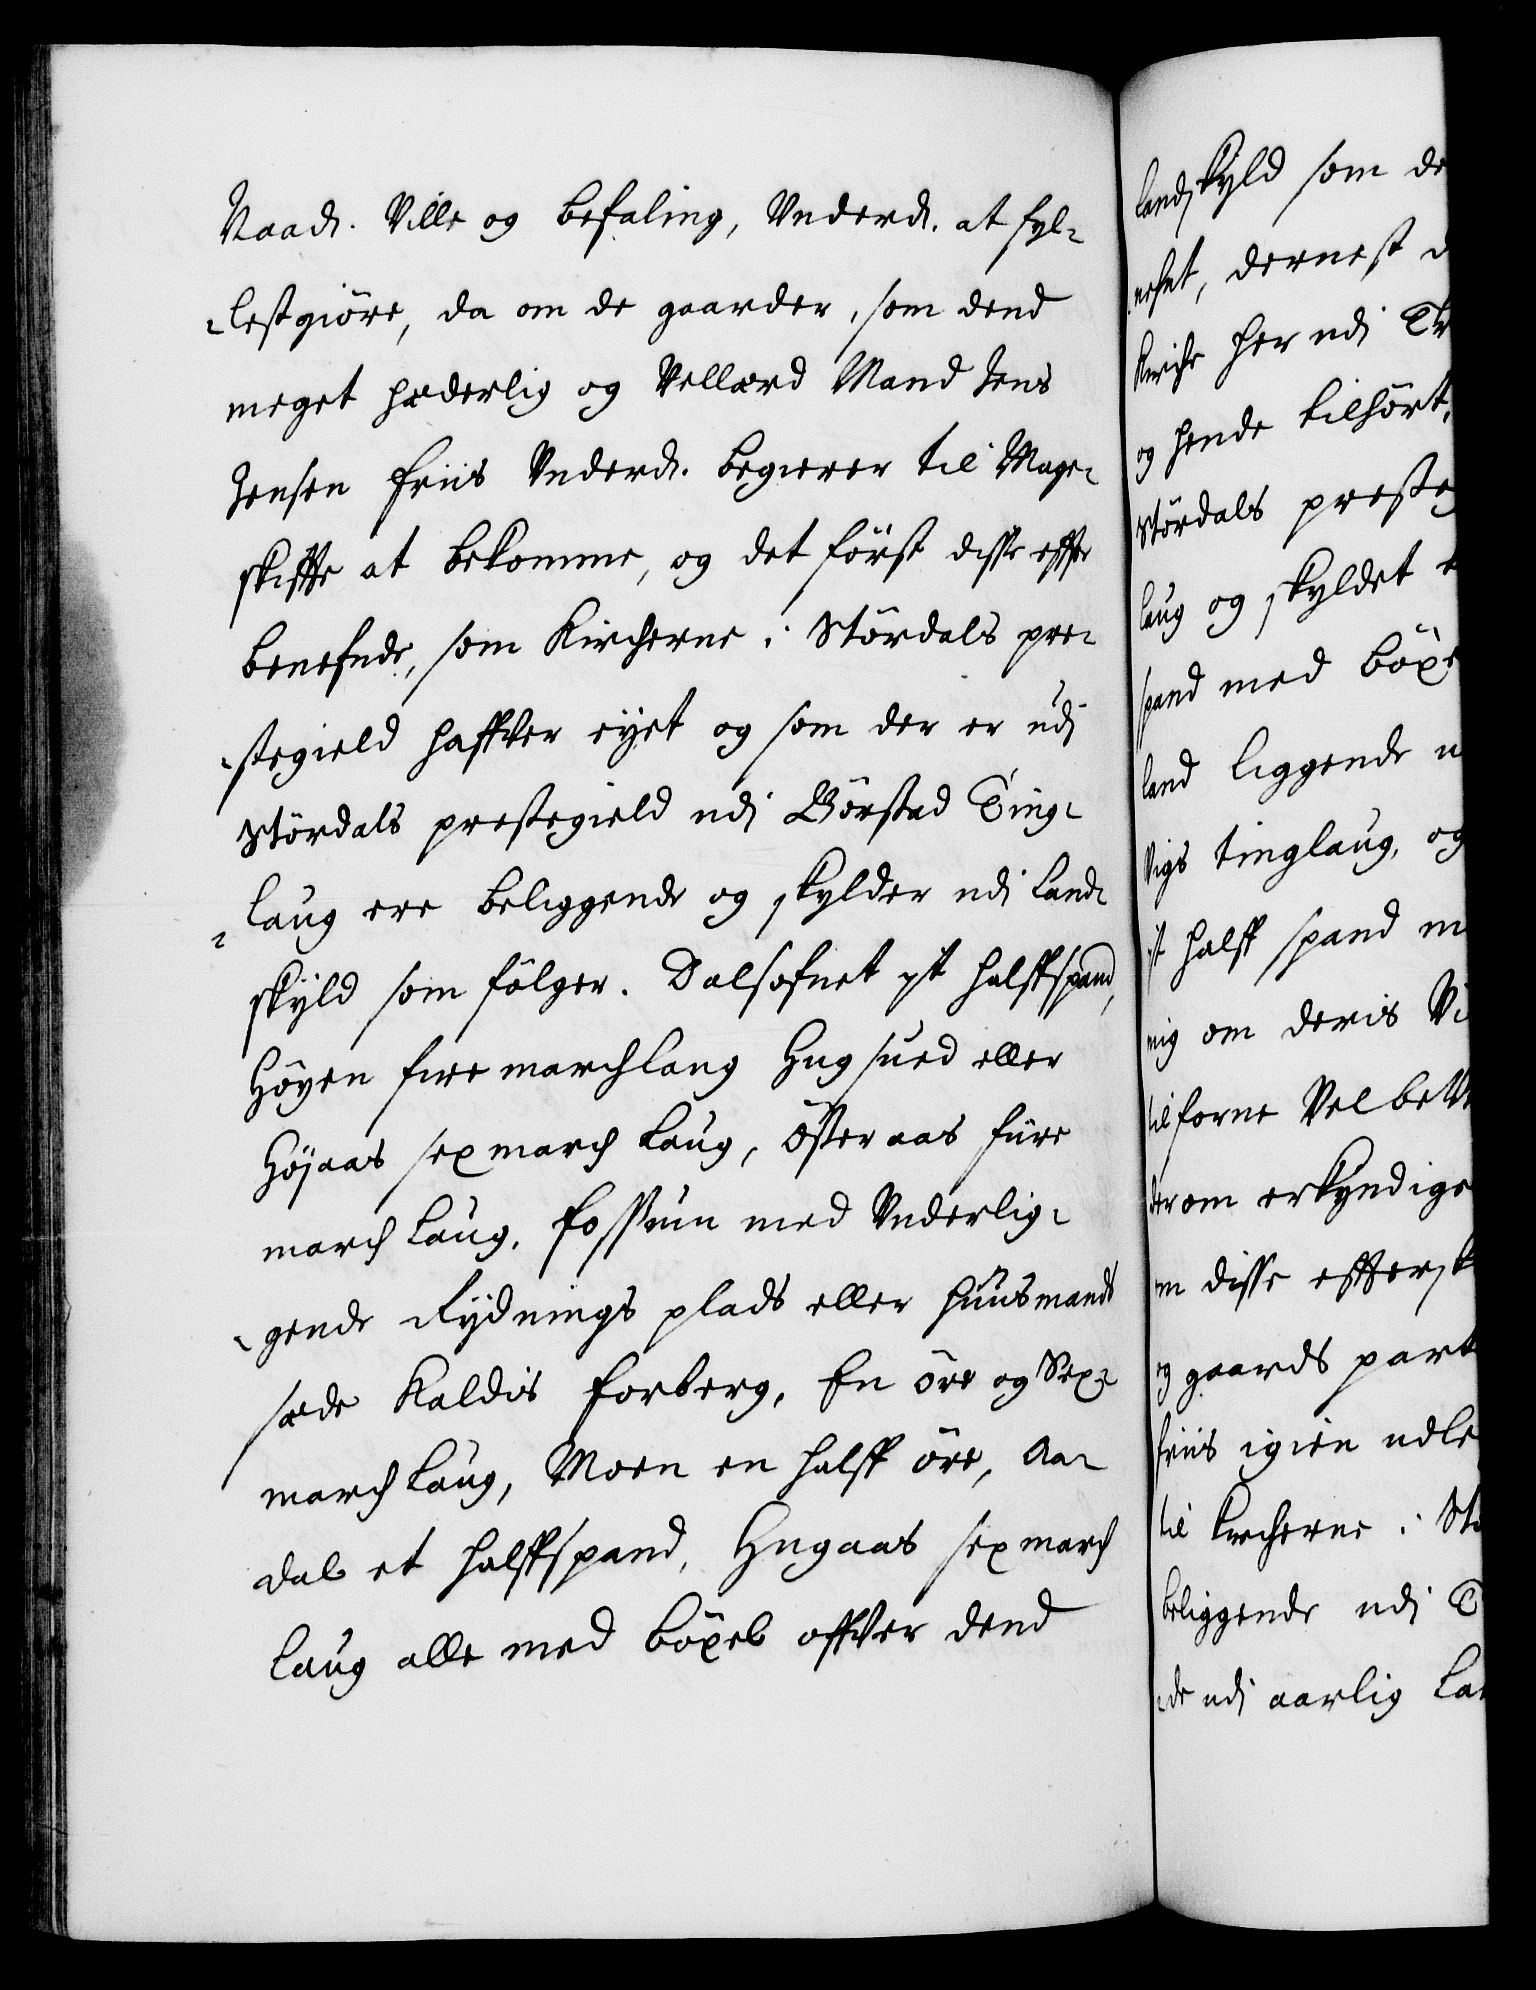 Naads. Ville og befaling, Underds. at fyl-
-lestgiöre, da om de gaarder, som dend
meget hæderlig og Vellærd Mand Jens
Jensen friis Underds. begierer til Mage-
skiffte at bekomme, og det först disse effter
benefnde, som Kircherne i Stördals pre-
-stegield haffver eyet og som der er udj
Stördals prestegield udj Börstad Ting-
-laug ere beliggende og skylder udj Land-
skyld som fölger. Dalsofnet it halffspand,
Höyen fire marchlaug Hugsued eller
Höjaas sex march laug, Österaas fiire
march laug, fossum med Underlig-
-gende Rydnings plads eller huusmands
sæde Kaldis forberg, En öre og Sex-
march laug, Moen en halff öre, Aa-
dal et halffspand, Hugaas sex march
laug alle med böxel offver dend
landskyld som de
nefnt, dernest d
Kirche her udj Tr
og hende tilhört,
Stördals presteg
laug og skyldet e
spand med böxe
land liggende u
Vigs tinglaug, og
it halff spand m
mig om deris Vi
tilforne Velbet
derom erkyndige
om disse efftersk
og gaards part
friis igien udle
til kircherne i St
beliggende udj T
-de udj aarlig La